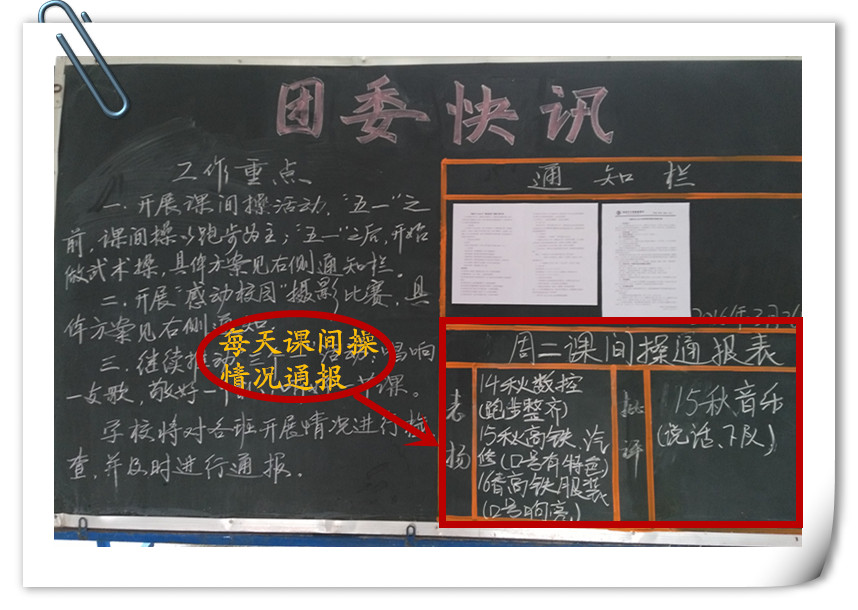 团委快讯
工作重点
一.开展课间操活动,"五一"之
前,课间操以跑步为主;"五一"之后,开始
做武术操,具体方案见右侧通知栏。
二.开展"感动校园"摄影比赛,具
体方案见右侧通知
三.继续推 唱响
一支歌,敬好一 课。
学校将对各班开展情况进行检
查,并及时进行通报.
每天课间操
情况通报
通知栏
2016年3月
周二课间操通报表
表扬
14秋数控
(跑步整齐)
15秋高铁、汽
修(口号有特色)
16春高铁服装
(口号响亮)
批评
15秋音乐
(说话、下队)